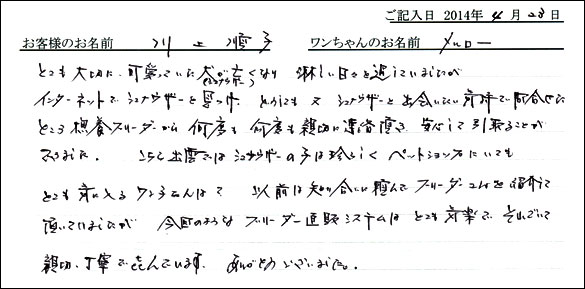 ご記入日 2014年 4月 23日
お客様のお名前 川上 順子 ワンちゃんのお名前 メロー
とても大切に、可愛っていた犬が亡くなり 淋しい日々を過していましたが
インターネットでシュナウザーを見つけ、どうしても又シュナウザーと出会いたい気持で問合せた
ところ 犬養ブリーダーから何度も何度も親切に連絡頂き、安心して引取ることが
できました。 ここ出雲ではシュナウザーの子は珍らしく ペットショップにいても
とても気に入るワンちゃんはなく 以前は知り合いに頼んでブリーダーさんを紹介して
頂いていましたが 今回のようなブリーダー直販システムはとても気楽で、それでいて
親切、丁寧で喜んでいます。 ありがとうございました。